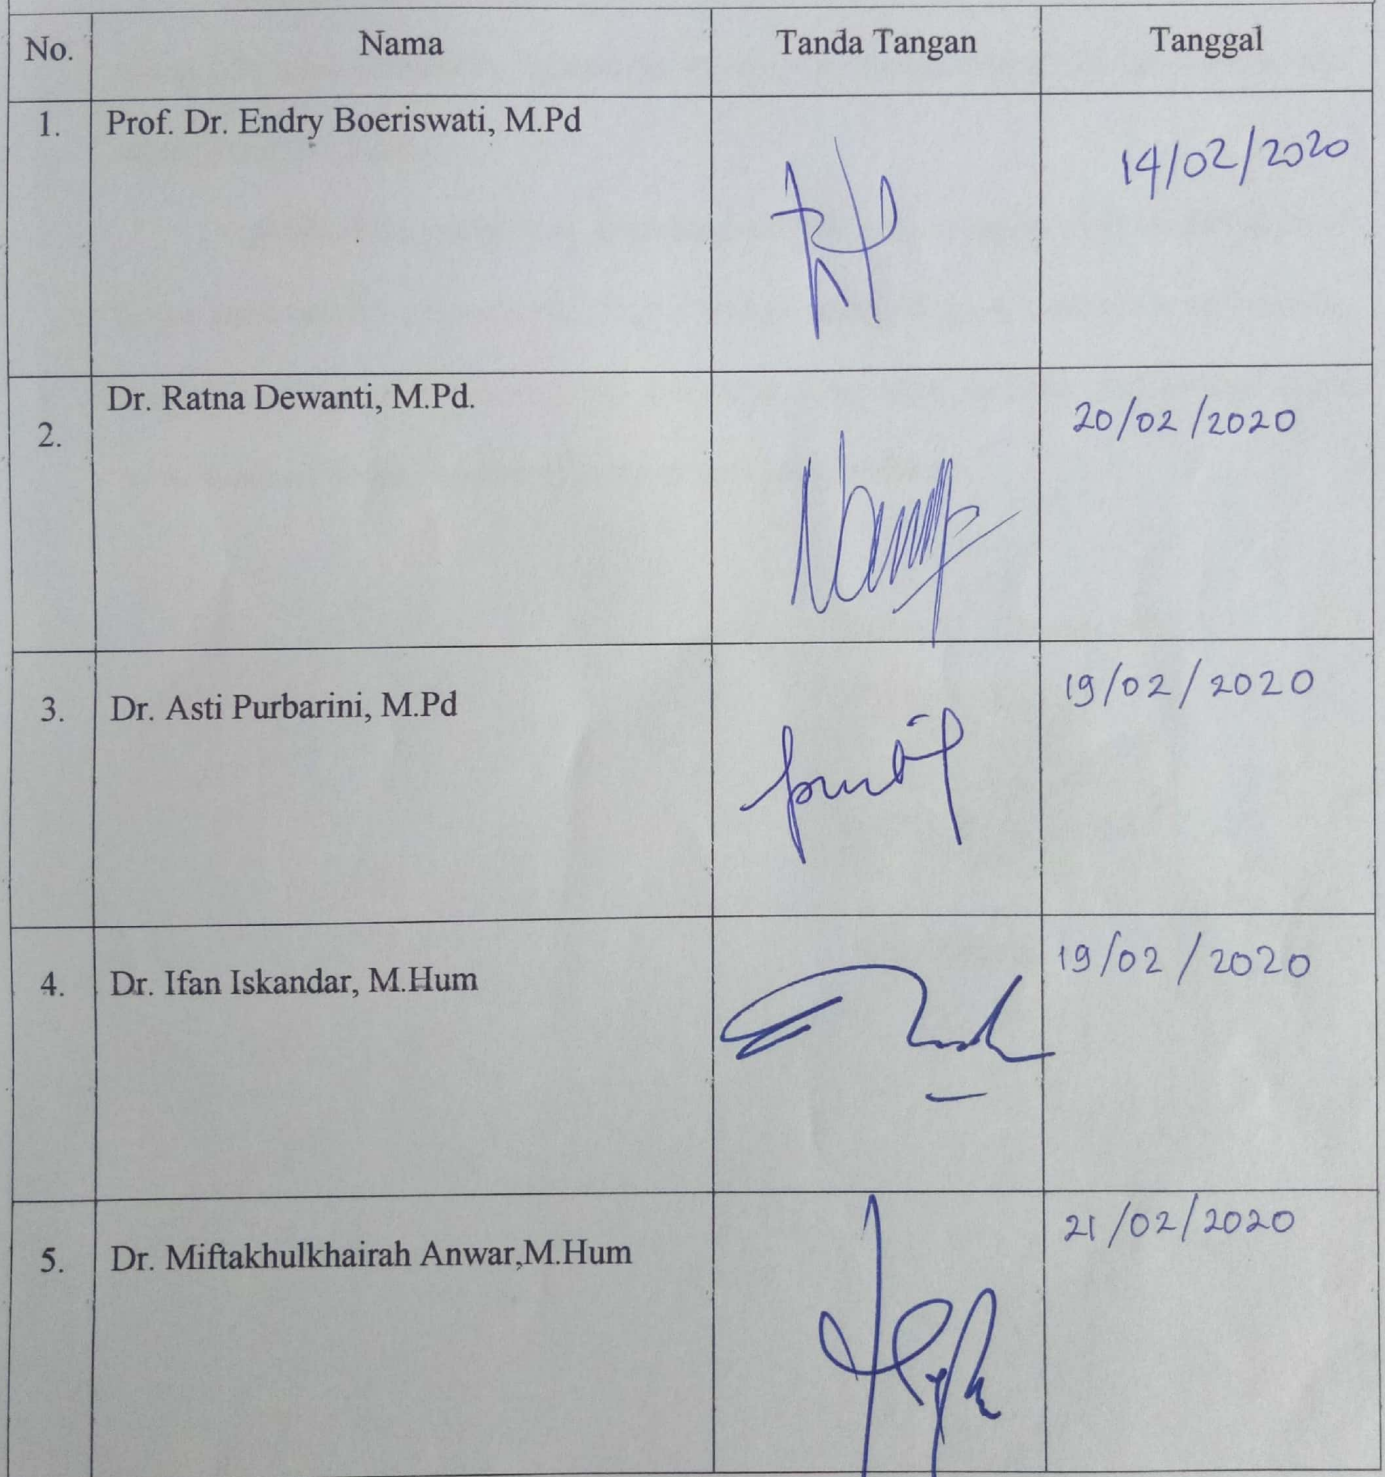 No. Nama Tanda Tangan Tanggal
1. Prof. Dr. Endry Boeriswati, M.Pd 14/02/2020
2. Dr. Ratna Dewanti, M.Pd. 20/02/2020
3. Dr. Asti Purbarini, M.Pd 19/02/2020
4. Dr. Ifan Iskandar, M.Hum 19/02/2020
5. Dr. Miftakhulkhairah Anwar,M.Hum 21/02/2020